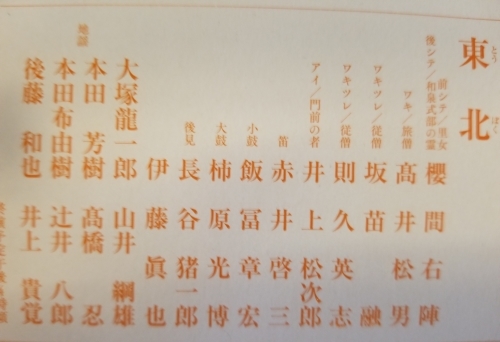 東北
前シテ/里女
後シテ/和泉式部の霊 櫻間右陣
ワキ/旅僧 髙井松男
ワキツレ/従僧 坂苗融
ワキツレ/従僧 則久英志
アイ/門前の者 井上松次郎
笛 赤井啓三
小鼓 飯冨章宏
大鼓 柿原光博
後見 長谷猪一郎
伊藤眞也
大塚龍一郎 山井綱雄
本田芳樹 髙橋忍
地謡
本田布由樹 辻井八郎
後藤和也 井上貴覚